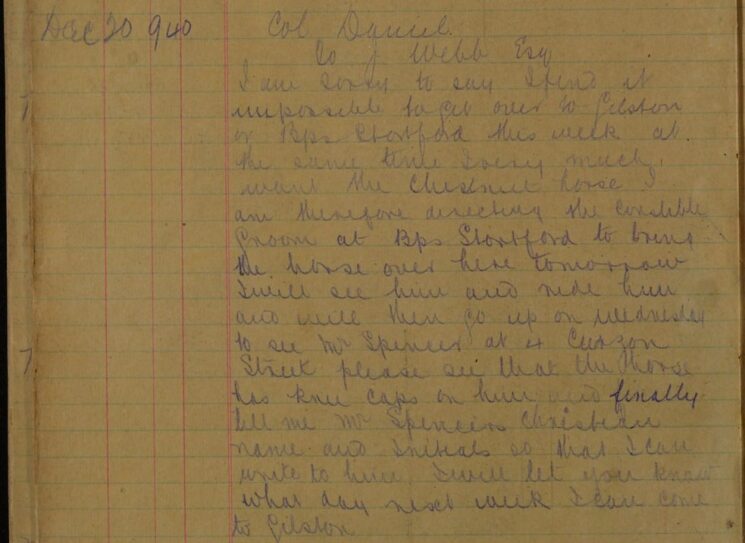 Dec 20 940 Col Daniel
to J Webb Esq
I am sorry to say I find it
impossible to get over to Gilston
or Bps Stortford this week at
the same time I very much
want the Chestnut horse I
am therefore directing the Constable
Groom at Bps Stortford to bring
the horse over here tomorrow
I will see him and ride him
and will then go up on Wednesday
to see Mr Spencer at 4 Curzon
Street please see that the horse
has knee caps on him and finally
tell me Mr Spencers Christian
name and Initials so that I can
write to him. I will let you know
what day next week I can come
to Gilston